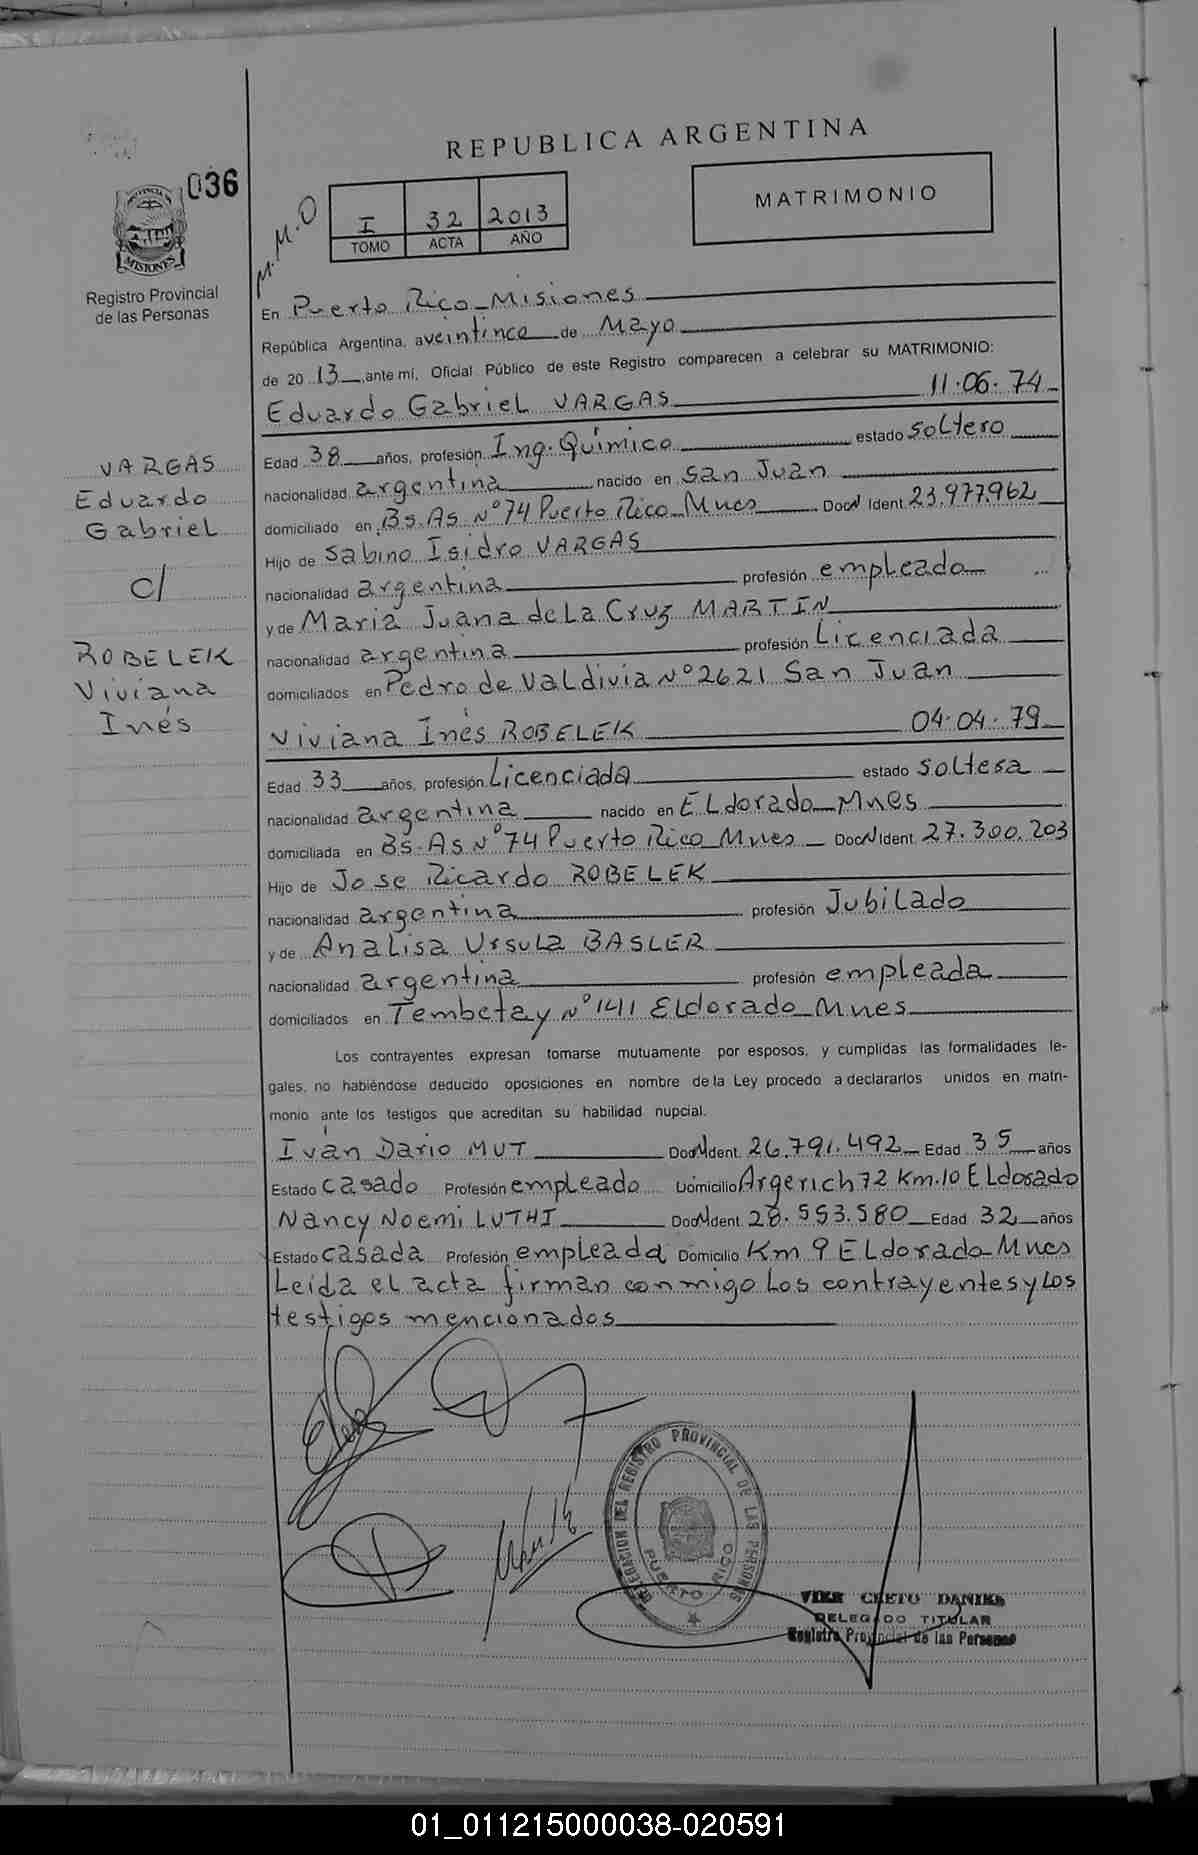 REPUBLICA ARGENTINA
036
MATRIMONIO
M.M.O
I 32 2013
TOMO ACTA AÑO
PROVINCIA DE
MISIONES
Registro Provincial
de las Personas
En Puerto Rico - Misiones
República Argentina, a veintinco de Mayo
de 20 13 ante mí, Oficial Público de este Registro comparecen a celebrar su MATRIMONIO:
Eduardo Gabriel VARGAS 11.06.74
Edad 38 años, profesión Ing. Químico estado soltero
nacionalidad argentina nacido en San Juan
domiciliado en Bs. As. N° 74 Puerto Rico Mnes Doc N Ident. 23.977.962
Hijo de Sabino Isidro VARGAS
nacionalidad argentina profesión empleado
y de Maria Juana de La Cruz MARTIN
nacionalidad argentina profesión Licenciada
domiciliados en Pedro de Valdivia N° 2621 San Juan
VARGAS
Eduardo
Gabriel
c/
ROBELEK
Viviana
Inés
Viviana Inés ROBELEK 04.04.79
Edad 33 años, profesión Licenciada estado soltera
nacionalidad argentina nacido en ELdorado Mnes
domiciliada en Bs. As N° 74 Puerto Rico Mnes Doc N Ident. 27.300.203
Hijo de Jose Ricardo ROBELEK
nacionalidad argentina profesión Jubilado
y de Analisa Ursula BASLER
nacionalidad argentina profesión empleada
domiciliados en Tembetay N° 141 ELdorado Mnes
Los contrayentes expresan tomarse mutuamente por esposos, y cumplidas las formalidades le-
gales, no habiéndose deducido oposiciones en nombre de la Ley procedo a declararlos unidos en matri-
monio ante los testigos que acreditan su habilidad nupcial.
Iván Dario MUT Doc N Ident. 26.791.492 Edad 35 años
Estado casado Profesión empleado Domicilio Argerich 72 Km.10 ELdorado
Nancy Noemi LUTHI Doc N Ident. 28.553.580 Edad 32 años
Estado casada Profesión empleada Domicilio Km 9 ELdorado Mnes
Leída el acta firman conmigo Los contrayentes y Los
testigos mencionados
DELEGACION DEL REGISTRO PROVINCIAL DE LAS PERSONAS
PUERTO RICO
DELEGADO TITULAR
Registro Provincial de las Personas
01_011215000038-020591